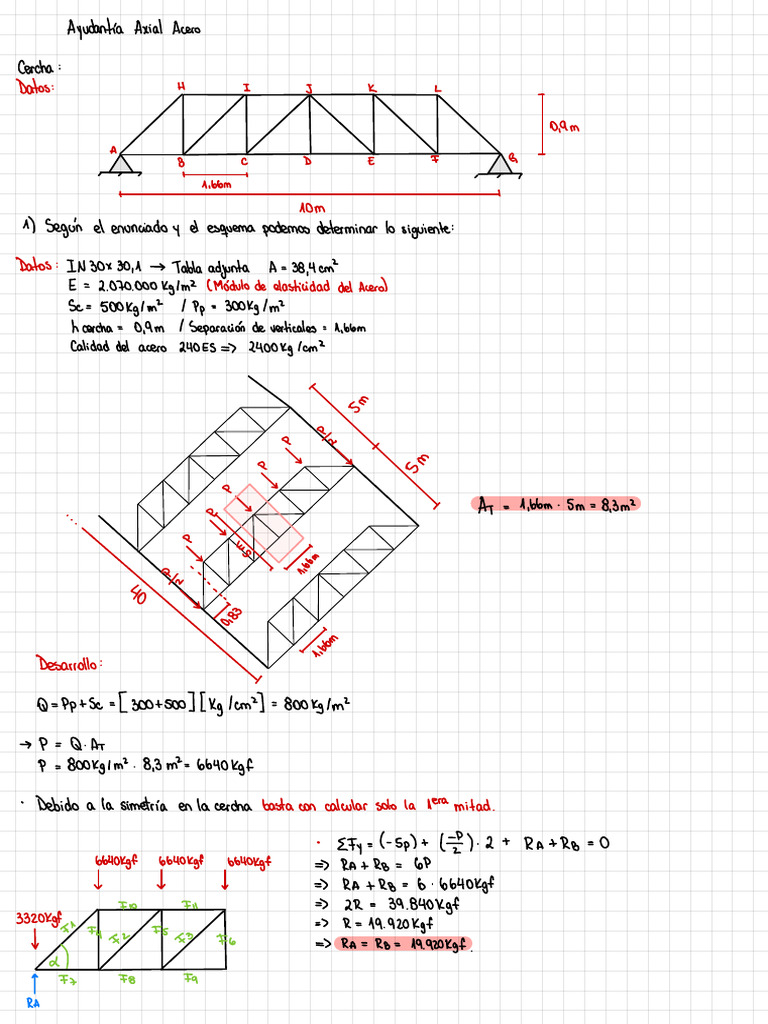 Ayudantía Axial Acero
Cercha:
Datos:
H I J K L
A B C D E F G
0,9m
1,66m
10m
1) Según el enunciado y el esquema podemos determinar lo siguiente:
Datos: IN 30x30,1 → Tabla adjunta A = 38,4 cm²
E = 2.070.000 Kg/m² (Módulo de elasticidad del Acero)
Sc = 500 Kg/m² / Pp = 300 Kg/m²
h cercha = 0,9m / Separación de verticales = 1,66m
Calidad del acero 240ES => 2400 Kg/cm²
5m
5m
P/2
P
P
P
P
P
P/2
5m
1,66m
0,83
1,66m
40
A_T = 1,66m · 5m = 8,3m²
Desarrollo:
Q = Pp + Sc = [300+500][Kg/cm²] = 800 Kg/m²
→ P = Q·A_T
P = 800Kg/m² · 8,3 m² = 6640 Kgf
· Debido a la simetría en la cercha basta con calcular solo la 1era mitad.
6640Kgf 6640Kgf 6640Kgf
3320Kgf
F10 F11
F1 F4 F2 F5 F3 F6
α
F7 F8 F9
RA
· ΣFy = (-5p) + (-P/2)·2 + RA + RB = 0
=> RA + RB = 6P
=> RA + RB = 6 · 6640Kgf
=> 2R = 39.840Kgf
=> R = 19.920Kgf
=> RA = RB = 19.920Kgf.